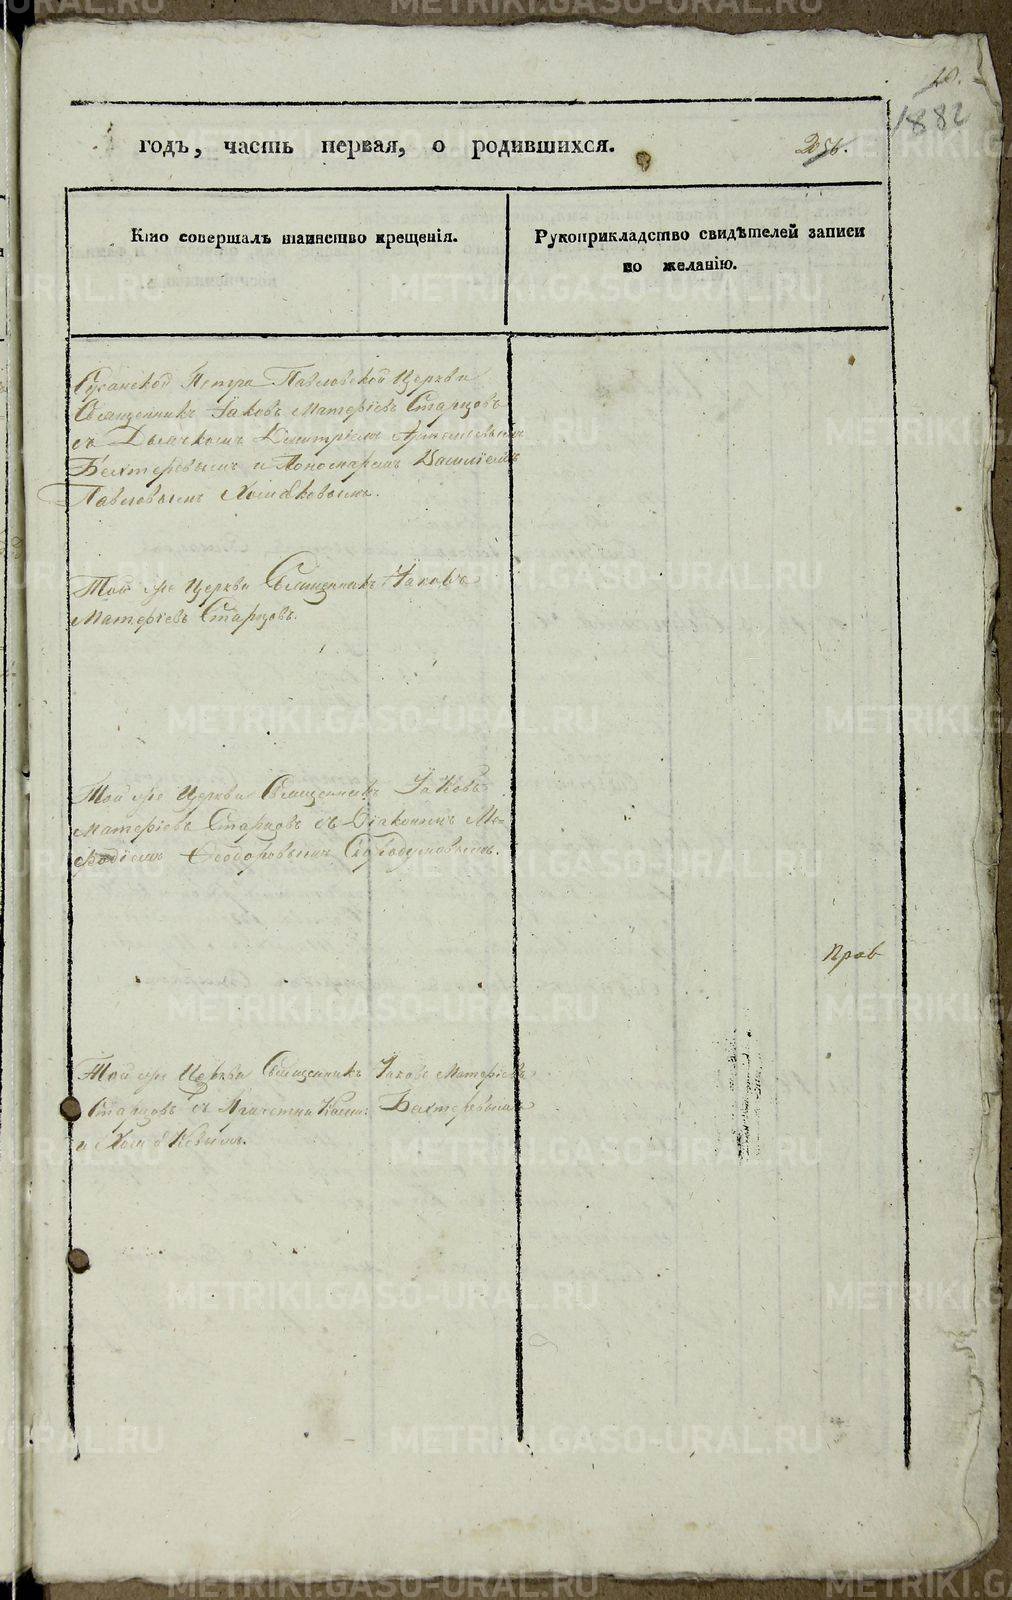 10.
1882
годъ, часть первая, о родившихся.
256.
Кто совершалъ таинство крещенія.
Рукоприкладство свидѣтелей записи
по желанію.
Петро Павловской Церкви
Священникъ Іаковъ Матѳіевъ Старцовъ
съ Дьячкомъ Димитріемъ
Бехтеревымъ и Пономаремъ Василіемъ
Павловымъ Хомяковымъ.
Той же Церкви Священникъ Іаковъ
Матѳіевъ Старцовъ.
Той же Церкви Священникъ Іаковъ
Матѳіевъ Старцовъ съ Діакономъ Ме-
ѳодіемъ Ѳеодоровымъ
Прав
Той же Церкви Священникъ Іаковъ Матѳіевъ
Старцовъ съ Причетниками: Бехтеревымъ
и Хомяковымъ.
METRIKI.GASO-URAL.RU